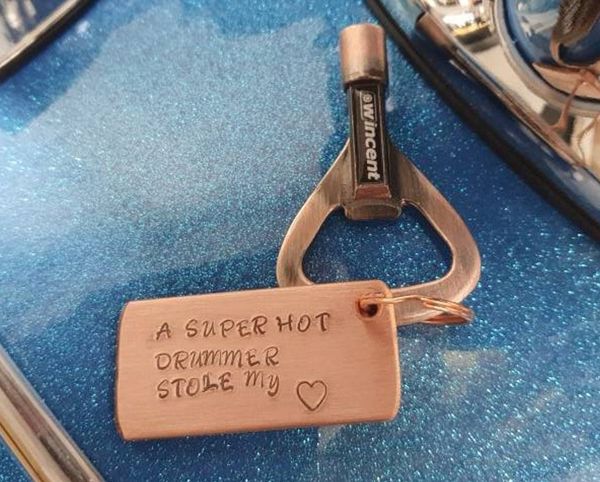 wincent
A SUPER HOT
DRUMMER
STOLE My ♡